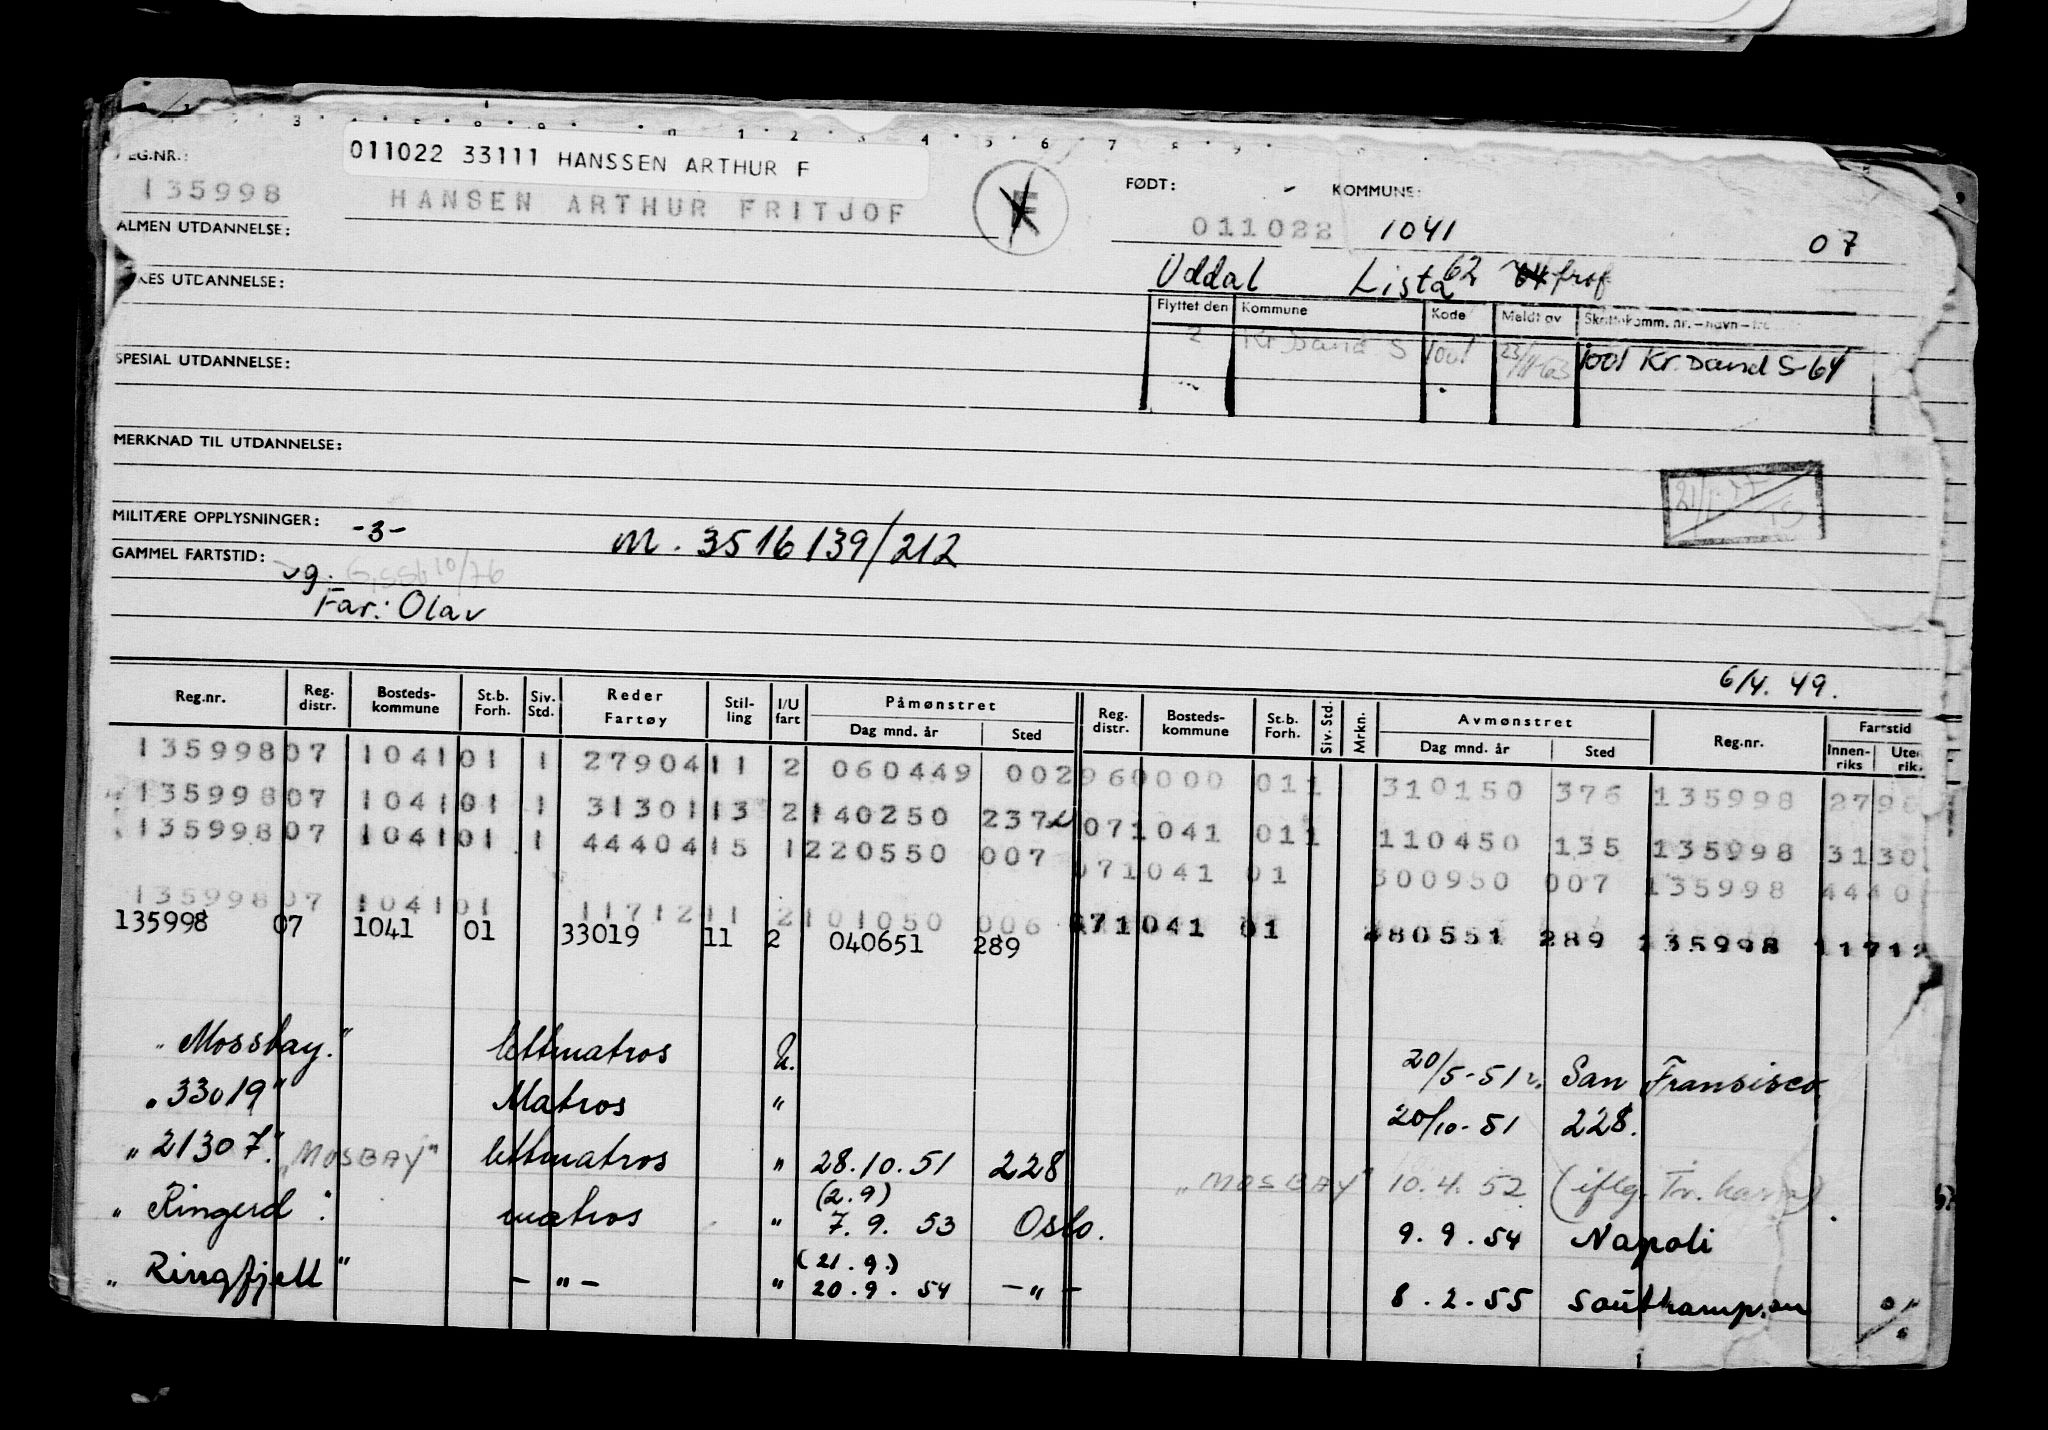 011022 33111 HANSSEN ARTHUR F
EG.NR.: FØDT: - KOMMUNE:
135998 HANSEN ARTHUR FRITJOF F 011022 1041 07
ALMEN UTDANNELSE:
KES UTDANNELSE: Uddal Lista 62 64 frof
Flyttet den Kommune Kode Meldt av Skattekomm. nr. – navn –
2 Kr. Sand S 1001 23/11-63 1001 Kr. Sand S-64
SPESIAL UTDANNELSE:
MERKNAD TIL UTDANNELSE:
MILITÆRE OPPLYSNINGER: -3- M. 3516139/212
GAMMEL FARTSTID: vg. 10/76
Far: Olav
6/4. 49.
Reg.nr. Reg. distr. Bosteds-kommune St.b. Forh. Siv. Std. Reder Fartøy Stil-ling I/U fart Påmønstret Dag mnd. år Sted Reg. distr. Bosteds-kommune St.b. Forh. Siv. Std. Mrkn. Avmønstret Dag mnd. år Sted Reg.nr. Fartstid Innen-riks Uten rik.
135998 07 1041 01 1 27904 11 2 060449 002 960000 01 1 310150 376 135998 2790
135998 07 1041 01 1 31301 13 2 140250 237 071041 01 1 110450 135 135998 3130
135998 07 1041 01 1 44404 15 1 220550 007 071041 01 300950 007 135998 4440
135998 07 1041 01 11712 11 2 101050 006 071041 01 280551 289 135998 11712
135998 07 1041 01 33019 11 2 040651 289
"Mossbay." lettmatros U. 20/5-51 San Fransisco
"33019" Matros " 20/10-51 228.
"21307." "MOSBAY" lettmatros " 28.10.51 228 "MOSBAY" 10.4.52 (iflg. Tr. )
(2.9)
"Ringerd": matros " 7.9. 53 Oslo. 9.9.54 Napoli
(21.9.)
"Ringfjell" - " - " 20.9. 54 - " - 8.2.55 Southampton